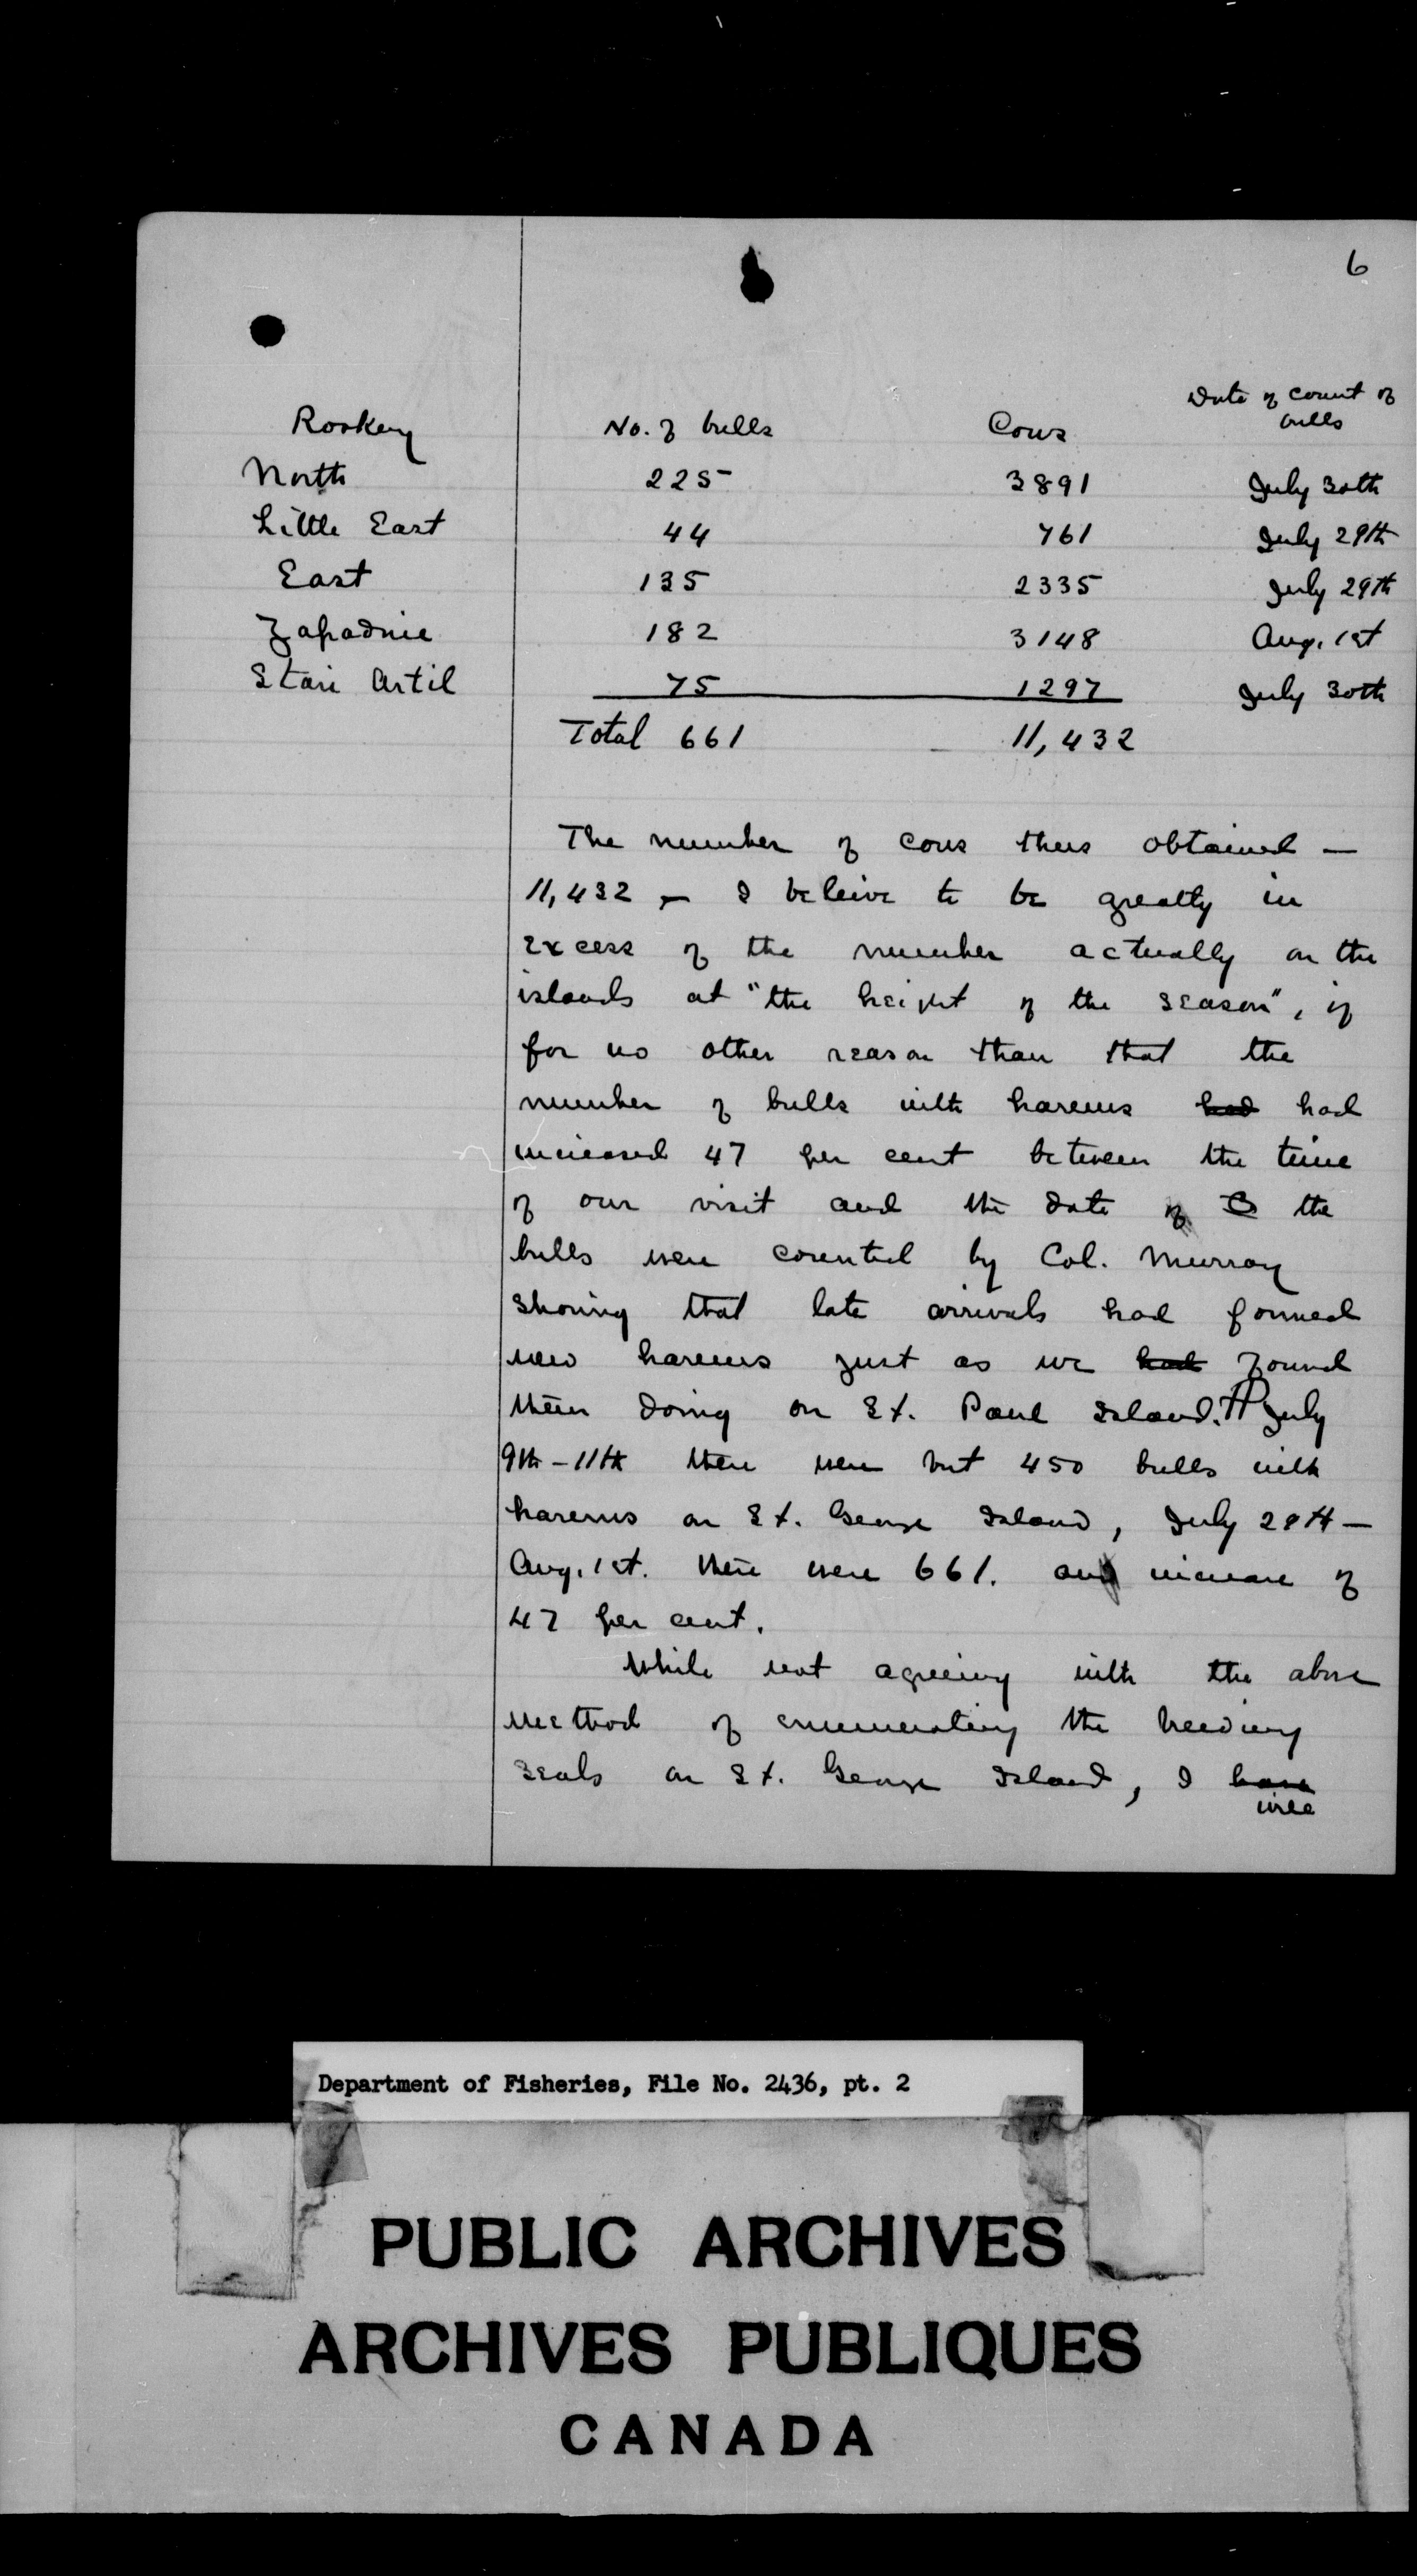 6
Rookery No. of bulls Cows Date of count of bulls
North 225 3891 July 30th
Little East 44 761 July 29th
East 135 2335 July 29th
Zapadnie 182 3148 Aug. 1st
Stari Artil 75 1297 July 30th
Total 661 11,432
The number of cows thus obtained —
11,432 — I beleive to be greatly in
excess of the number actually on the
islands at "the height of the season", if
for no other reason than that the
number of bulls with harems had had
increased 47 per cent between the time
of our visit and the date of the
bulls were counted by Col. Murray
showing that late arrivals had formed
new harems just as we had found
them doing on St. Paul Island. July
9th – 11th there were but 450 bulls with
harems on St. George Island, July 29th —
Aug. 1st. there were 661. an increase of
47 per cent.
While not agreeing with the above
method of enumerating the breeding
seals on St. George Island, I have
will
Department of Fisheries, File No. 2436, pt. 2
PUBLIC ARCHIVES
ARCHIVES PUBLIQUES
CANADA